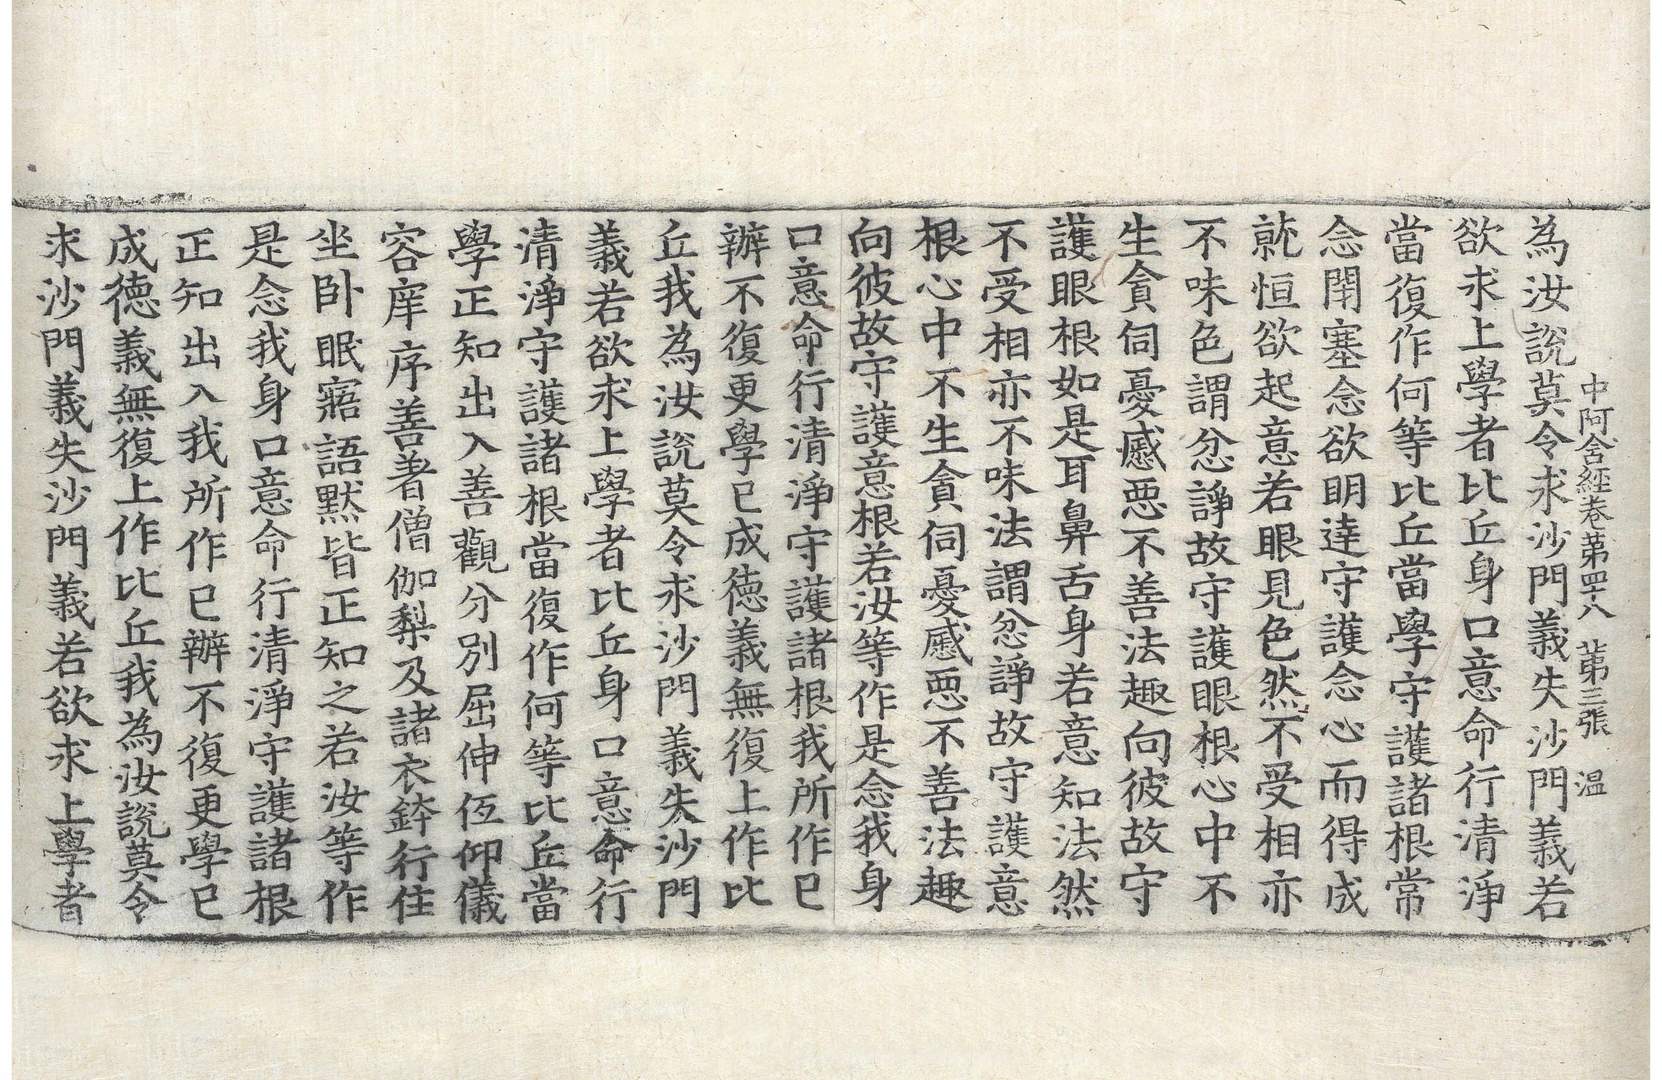 中阿含經卷第四十八　第三張　温
為汝說莫令求沙門義失沙門義若
欲求上學者比丘身口意命行清淨
當復作何等比丘當學守護諸根常
念閉塞念欲明達守護念心而得成
就恒欲起意若眼見色然不受相亦
不味色謂忿諍故守護眼根心中不
生貪伺憂慼惡不善法趣向彼故守
護眼根如是耳鼻舌身若意知法然
不受相亦不味法謂忿諍故守護意
根心中不生貪伺憂慼惡不善法趣
向彼故守護意根若汝等作是念我身
口意命行清淨守護諸根我所作已
辦不復更學已成德義無復上作比
丘我為汝說莫令求沙門義失沙門
義若欲求上學者比丘身口意命行
清淨守護諸根當復作何等比丘當
學正知出入善觀分別屈伸低仰儀
容庠序善著僧伽梨及諸衣鉢行住
坐卧眠寤語默皆正知之若汝等作
是念我身口意命行清淨守護諸根
正知出入我所作已辦不復更學已
成德義無復上作比丘我為汝說莫令
求沙門義失沙門義若欲求上學者